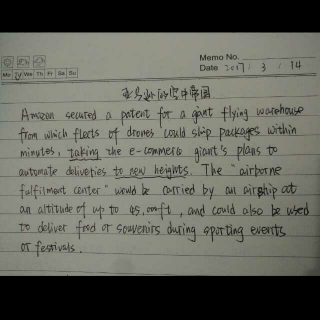 Memo No.
Mo Tu We Th Fr Sa Su
Date 2017 / 3 / 14
亚马逊的空中帝国
Amazon secured a patent for a giant flying warehouse
from which fleets of drones could ship packages within
minutes, taking the e-commerce giant's plans to
automate deliveries to new heights. The "airborne
fulfilment center" would be carried by an airship at
an altitude of up to 45,000ft, and could also be used
to deliver food or souvenirs during sporting events
or festivals.